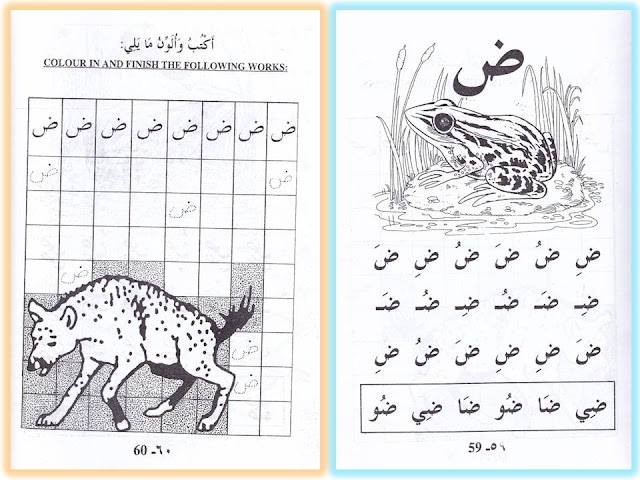 ض
ضِ ضُ ضَ ضُ ضِ ضَ
ضِـ ضَـ ضُـ ضِـ ضُـ ضَـ
ضَ ضِ ضِ ضَ ضُ ضِ
ضِي ضَا ضُو ضَا ضِي ضُو
59 -٥٩
أَكْتُبُ وَأُلَوِّنُ مَا يَلِي:
COLOUR IN AND FINISH THE FOLLOWING WORKS:
ض ض ض ض ض ض ض ض
ض ض
ض
ض
ض
ض
60 -٦٠